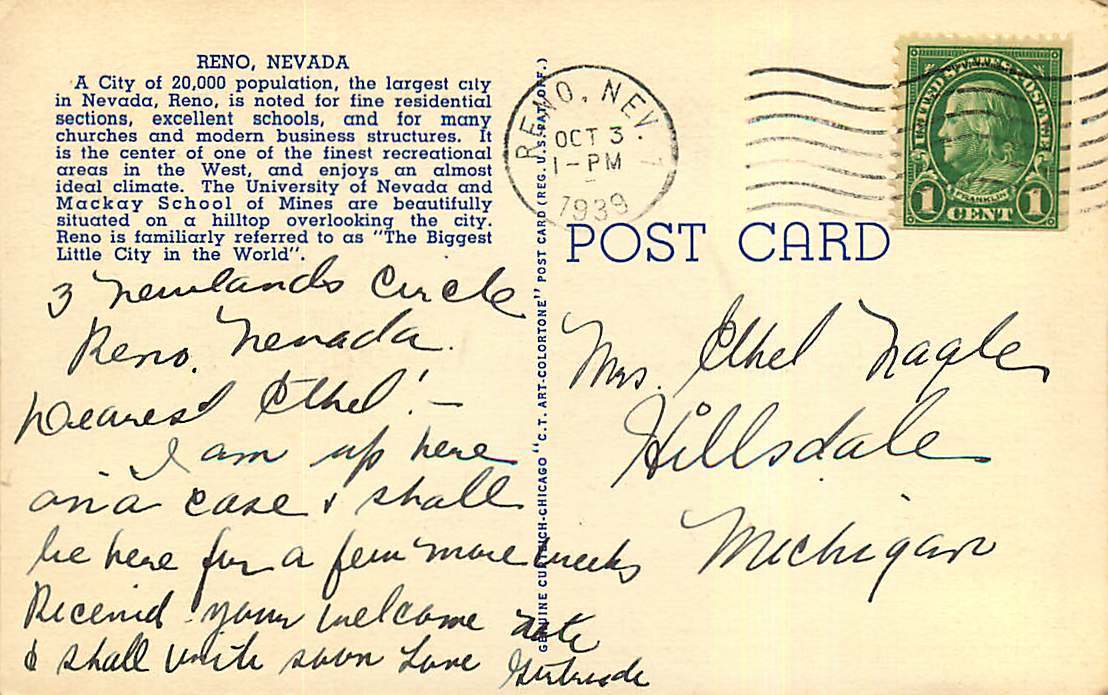 RENO, NEVADA
A City of 20,000 population, the largest city
in Nevada, Reno, is noted for fine residential
sections, excellent schools, and for many
churches and modern business structures. It
is the center of one of the finest recreational
areas in the West, and enjoys an almost
ideal climate. The University of Nevada and
Mackay School of Mines are beautifully
situated on a hilltop overlooking the city.
Reno is familiarly referred to as "The Biggest
Little City in the World".
3 Newlands Circle
Reno, Nevada.
Dearest Ethel! —
I am up here
on a case & shall
be here for a few more weeks
Received your welcome note
& shall write soon Love Gertrude
GENUINE CURTEICH-CHICAGO "C.T. ART-COLORTONE" POST CARD (REG. U.S. PAT. OFF.)
RENO, NEV.
OCT 3
1-PM
1939
1 CENT 1
FRANKLIN
POST CARD
Mrs. Ethel Nagle
Hillsdale
Michigan